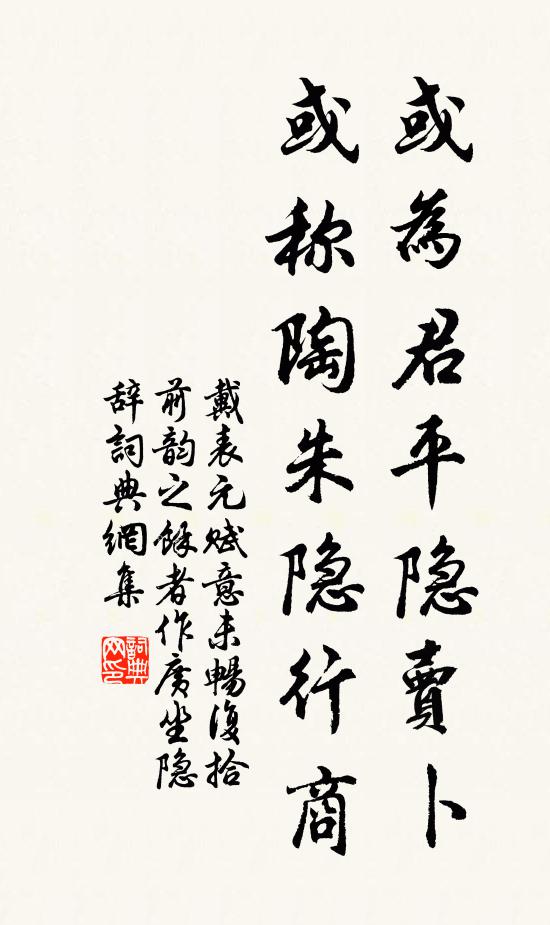 或為君平隐賣卜
或称陶朱隐行商
戴表元赋意未暢復拾
前韵之餘者作廣坐隐
辞詞典網集
詞典
网印